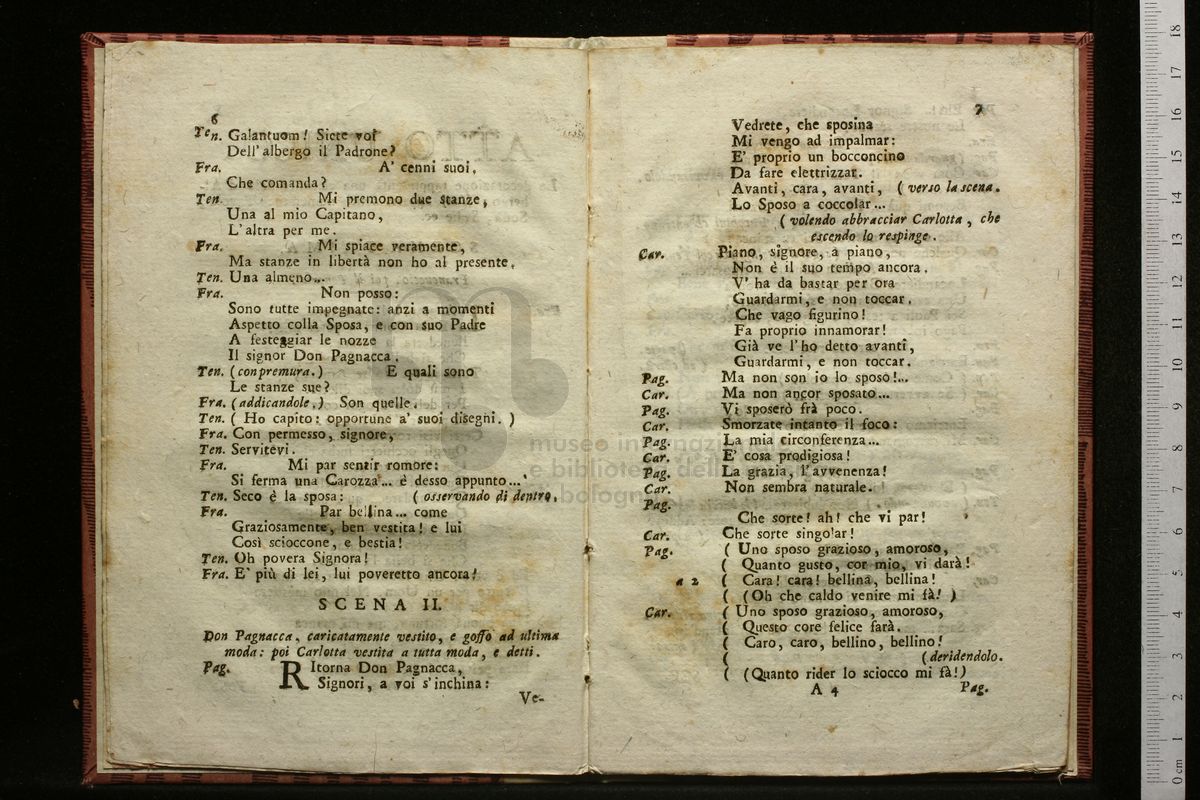 6
Ten. Galantuom! Siete voi
Dell'albergo il Padrone?
Fra. A' cenni suoi,
Che comanda?
Ten. Mi premono due stanze,
Una al mio Capitano,
L'altra per me.
Fra. Mi spiace veramente,
Ma stanze in libertà non ho al presente.
Ten. Una almeno...
Fra. Non posso:
Sono tutte impegnate: anzi a momenti
Aspetto colla Sposa, e con suo Padre
A festeggiar le nozze
Il signor Don Pagnacca.
Ten. (con premura.) E quali sono
Le stanze sue?
Fra. (addicandole.) Son quelle.
Ten. ( Ho capito: opportune a' suoi disegni. )
Fra. Con permesso, signore,
Ten. Servitevi.
Fra. Mi par sentir romore:
Si ferma una Carozza... è desso appunto...
Ten. Seco è la sposa: ( osservando di dentro.
Fra. Par bellina... come
Graziosamente, ben vestita! e lui
Così scioccone, e bestia!
Ten. Oh povera Signora!
Fra. E' più di lei, lui poveretto ancora!
SCENA II.
Don Pagnacca, caricatamente vestito, e goffo ad ultima
moda: poi Carlotta vestita a tutta moda, e detti.
Pag. Ritorna Don Pagnacca,
Signori, a voi s'inchina:
Ve-
7
Vedrete, che sposina
Mi vengo ad impalmar:
E' proprio un bocconcino
Da fare elettrizzar.
Avanti, cara, avanti, ( verso la scena.
Lo Sposo a coccolar...
( volendo abbracciar Carlotta, che
escendo lo respinge.
Car. Piano, signore, a piano,
Non è il suo tempo ancora.
V' ha da bastar per ora
Guardarmi, e non toccar.
Che vago figurino!
Fa proprio innamorar!
Già ve l'ho detto avanti,
Guardarmi, e non toccar.
Pag. Ma non son io lo sposo!...
Car. Ma non ancor sposato...
Pag. Vi sposerò frà poco.
Car. Smorzate intanto il foco:
Pag. La mia circonferenza...
Car. E' cosa prodigiosa!
Pag. La grazia, l'avvenenza!
Car. Non sembra naturale.
Pag.
Che sorte! ah! che vi par!
Car. Che sorte singolar!
Pag. ( Uno sposo grazioso, amoroso,
( Quanto gusto, cor mio, vi darà!
a 2 ( Cara! cara! bellina, bellina!
( (Oh che caldo venire mi fà! )
Car. ( Uno sposo grazioso, amoroso,
( Questo core felice farà.
( Caro, caro, bellino, bellino!
( (deridendolo.
( (Quanto rider lo sciocco mi fà!)
A 4 Pag.
museo internazi
e biblioteca dell
di bologna
0 cm 1 2 3 4 5 6 7 8 9 10 11 12 13 14 15 16 17 18